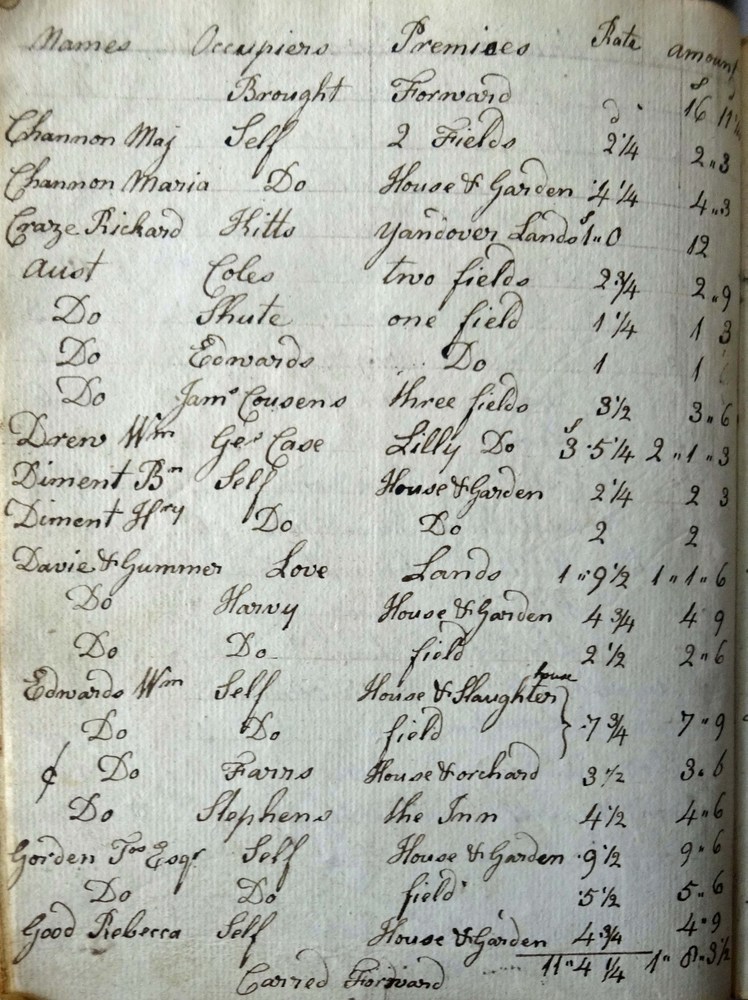 Names Occupiers Premises Rate amount
Brought Forward 16 11
Channon Maj Self 2 Fields 2 1/4 2 " 3
Channon Maria Do House & Garden 4 1/4 4 " 3
Craze Rickard Hitts Yandover Lands 1 " 0 12
Aust Coles two fields 2 3/4 2 " 9
Do Shute one field 1 1/4 1 3
Do Edwards Do 1 1
Do Jams Cousens three fields 3 1/2 3 " 6
Drew Wm Geo Case Lilly Do 3 " 5 1/4 2 " 1 " 3
Diment Bn Self House & Garden 2 1/4 2 3
Diment Hry Do Do 2 2
Davie & Gummer Love Lands 1 " 9 1/2 1 " 1 " 6
Do Harvy House & Garden 4 3/4 4 9
Do Do field 2 1/2 2 " 6
Edwards Wm Self House & Slaughter house
Do Do field 7 3/4 7 " 9
¢ Do Farrs House & orchard 3 1/2 3 " 6
Do Stephens the Inn 4 1/2 4 " 6
Gorden Jas Esqr Self House & Garden 9 1/2 9 " 6
Do Do field 5 1/2 5 " 6
Good Rebecca Self House & Garden 4 3/4 4 " 9
Carred Forward 11 " 4 1/4 1 " 8 " 3 1/2